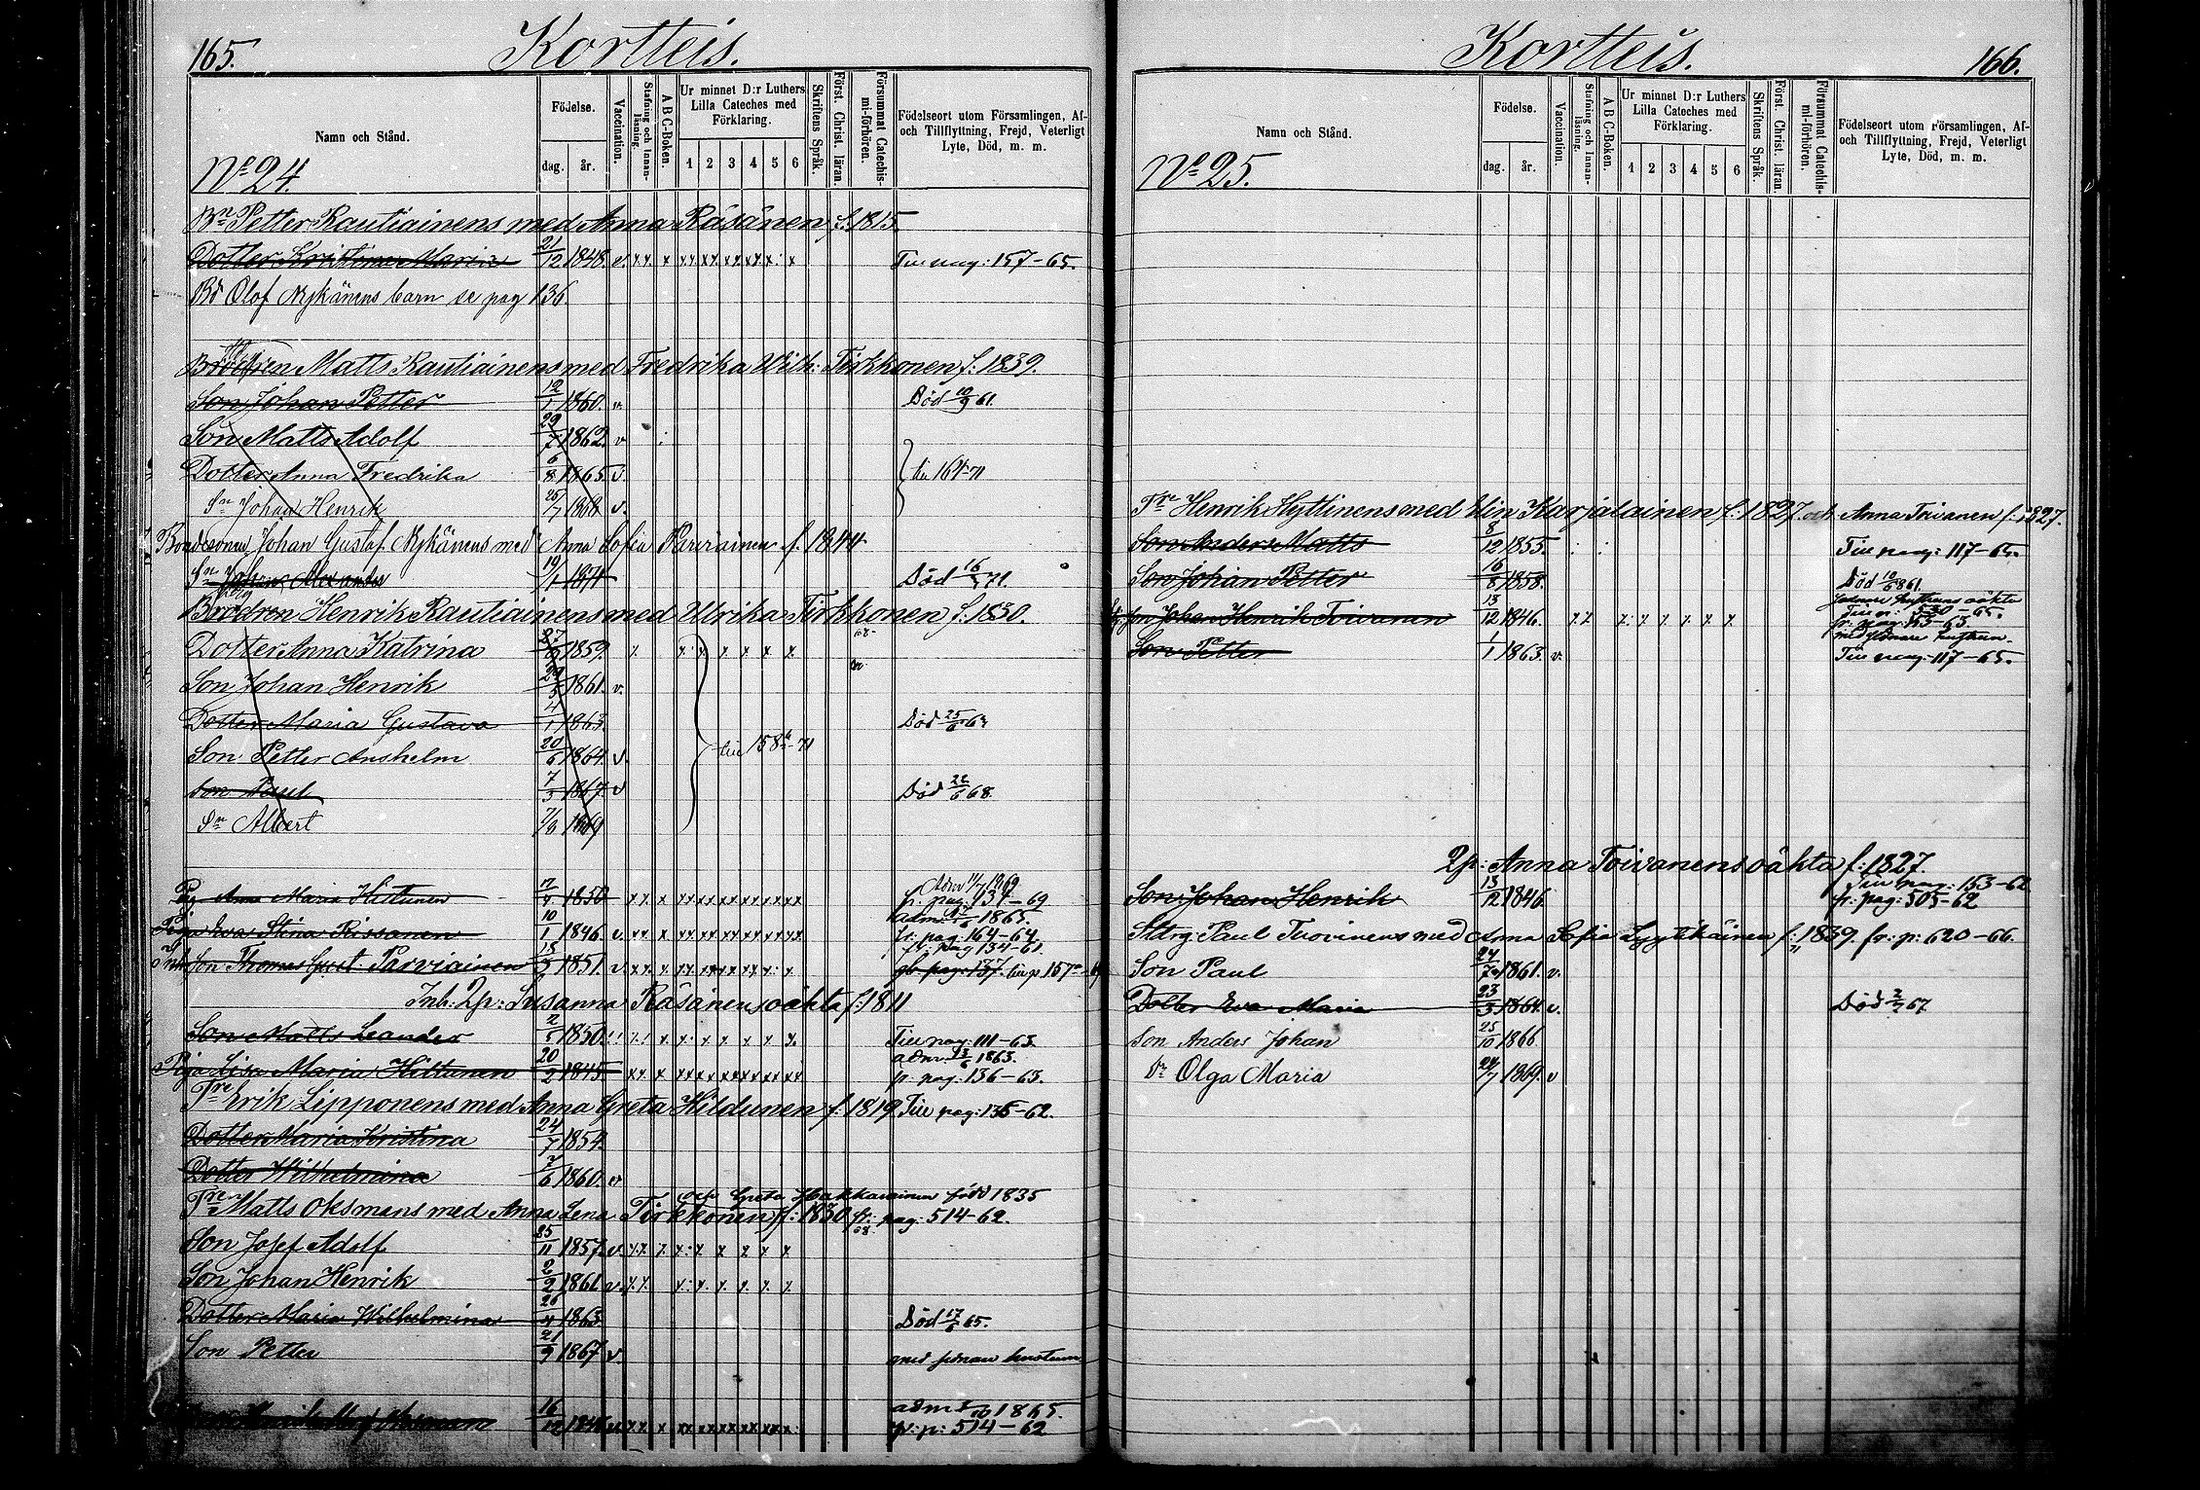 165. Kortteis.
Namn och Stånd.
Födelse.
dag. år.
Vaccination.
Stafning och Innan-läsning.
A B C-Boken.
Ur minnet D:r Luthers Lilla Cateches med Förklaring.
1 2 3 4 5 6
Skriftens Språk.
Först. Christ. läran.
Försummat Catechis-mi-förhören.
Födelseort utom Församlingen, Af- och Tillflyttning, Frejd, Veterligt Lyte, Död, m. m.
No 24.
Bn Petter Rautiainens med Anna Räsänen f. 1815.
Dotter Kristina Maria 21/12 1848. v. xx x xx xx xx xx x x Till pag: 157-65.
Bd Olof Nykänens barn se pag 136.
Brodren Matts Rautiainens med Fredrika Wilh: Tirkkonen f: 1839.
Son Johan Petter 12/1 1860. v. Död 10/9 61.
Son Matts Adolf 29/7 1862. v
Dotter Anna Fredrika 6/8 1865. v
Sn Johan Henrik 25/7 1868 v. till 164-71
Bondesonen Johan Gustaf Nykänens med Anna Sofia Parviainen f. 1844
Sn Johan Alexander 19/1 1871 Död 16/ 71.
Brodren Henrik Rautiainens med Ulrika Tirkkonen f. 1830.
Dotter Anna Katrina 27/ 1859. x x x x x x x
Son Johan Henrik 29/3 1861. v.
Dotter Maria Gustava 4/1 1863. Död 25/ 63
Son Petter Anshelm 20/6 1864. v. till 158-71
Son Paul 7/3 1867. v Död 22/6 68
Sn Albert 7/8 1869
Adm 11/7 1869
Pig Anna Maria Hiltunen 1850 xx x xxxxxxxxxxx fr. pag: 134-69
Piga Eva Stina Rissanen 10/1 1846. v. xx x xxxxxxxxxxx adm. 1863. fr: pag: 164-64
Son Thomas Gust. Parviainen 18/ 1851. v. xx x xx xx xx x x x fr. pag 134-61.
till p 157
Inh: 2p: Susanna Räsänens oäkta f. 1811
Son Matts Leander 2/ 1850. Till pag: 111-63.
Piga Lisa Maria Hiltunen 20/2 1845 xx x xxxxxxxxxxx adm. 1863. fr. pag: 136-63.
Tre Erik Lipponens med Anna Greta Hildunen f. 1819 Till pag: 135-62.
Dotter Maria Kristina 24/7 1854
Dotter Wilhelmina 7/6 1860. v
och Greta Makkarainen född 1835
Tre Matts Oksmans med Anna Lena Tirkkonen f: 1830 fr: pag: 514-62.
Son Josef Adolf 25/11 1857. v. xx x x x x x x x
Son Johan Henrik 2/2 1861. v. xx x x x x x x
Dotter Maria Wilhelmina 26/4 1863 Död 17/6 65.
Son Petter 21/9 1867 v. med hustrun
16/12 adm 1865.
fr: p: 514-62
Kortteis. 166.
Namn och Stånd.
Födelse.
dag. år.
Vaccination.
Stafning och Innan-läsning.
A B C-Boken.
Ur minnet D:r Luthers Lilla Cateches med Förklaring.
1 2 3 4 5 6
Skriftens Språk.
Först. Christ. läran.
Försummat Catechis-mi-förhören.
Födelseort utom Församlingen, Af- och Tillflyttning, Frejd, Veterligt Lyte, Död, m. m.
No 25.
Tre Henrik Hyttinens med Elin Karjalainen f: 1827. och Anna Toivanen f: 1827.
Son Anders Matts 8/12 1855. Till pag: 117-65.
Son Johan Petter 16/8 1858. Död 10/ 861.
Son Johan Henrik Toivanen 13/12 1846. xx x x x x x x Till p: 530-65. fr: pag: 153-63
Son Petter 1/1 1863. v. Till pag: 117-65.
2p: Anna Toivanens oäkta f: 1827.
Son Johan Henrik 13/12 1846. Till pag: 153-62 fr: pag: 505-62
Sldrg: Paul Tuovinens med Anna Sofia Lyytikäinen f: 1839. fr: p: 620-66.
Son Paul 24/7 1861. v.
Dotter Eva Maria 23/3 1864. v. Död 2/7 67
Son Anders Johan 25/10 1866
Dr Olga Maria 24/7 1869. v